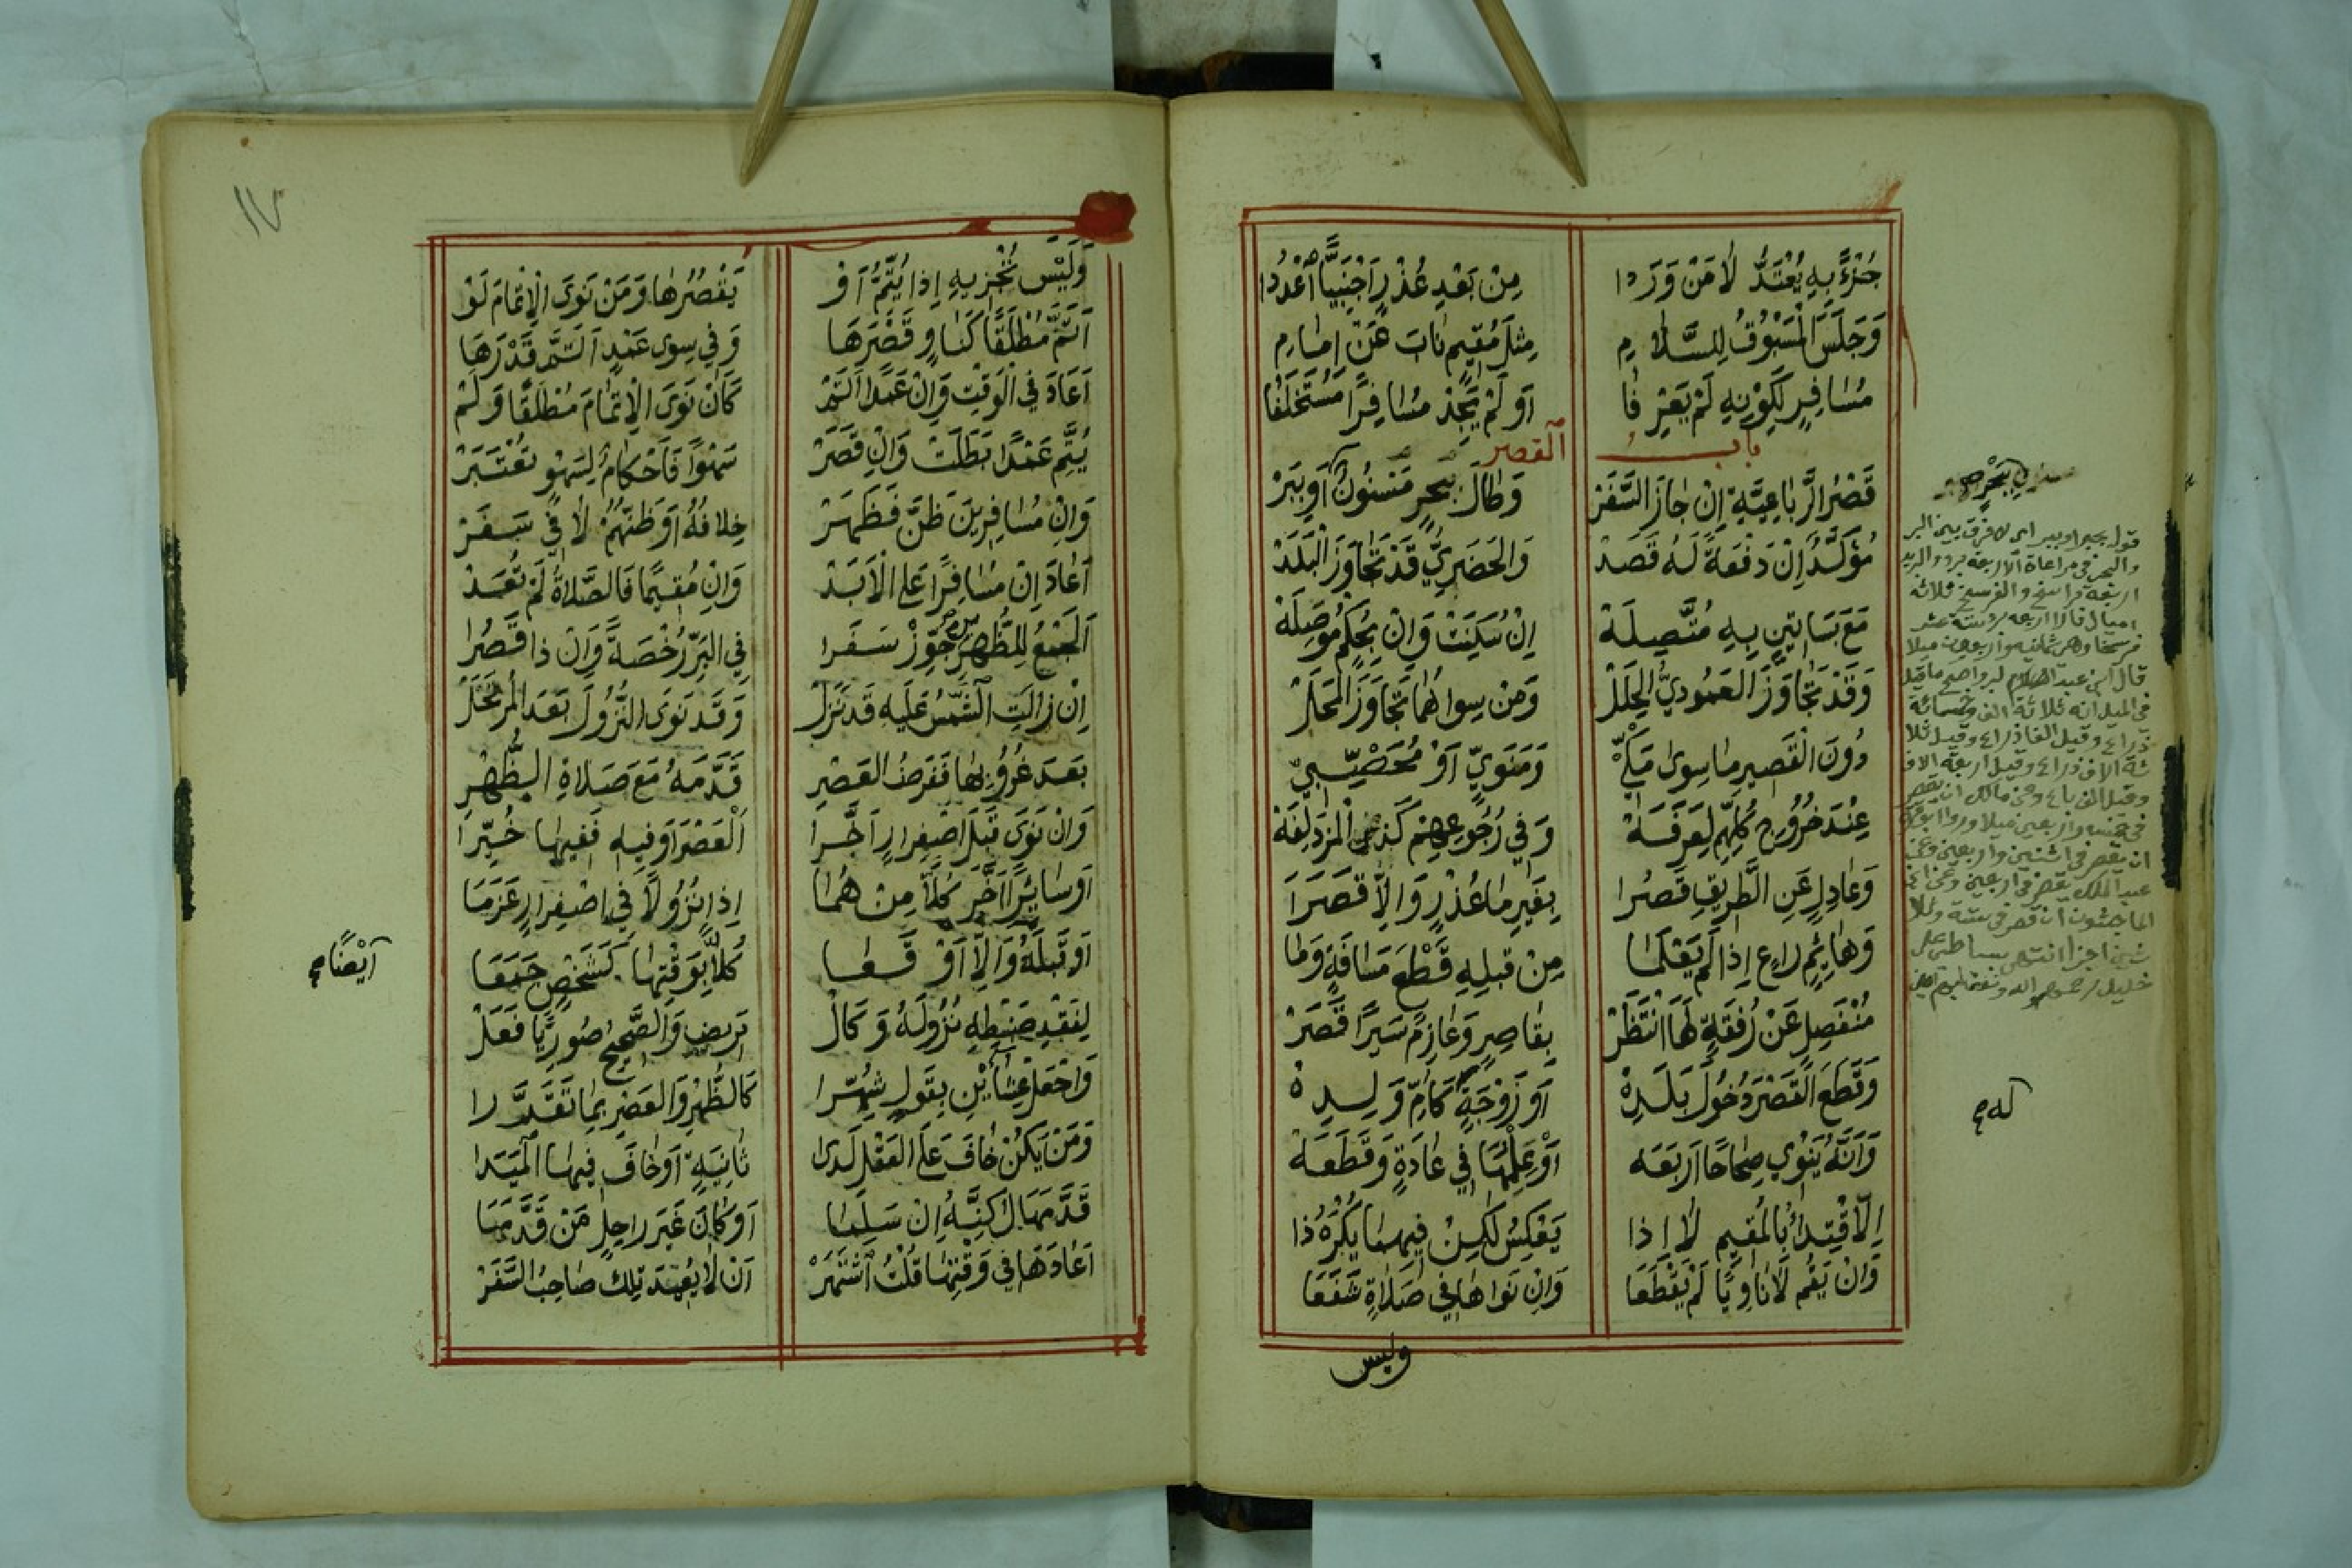 جُزْءً بِهِ يُعْتَدُّ لَا مَنْ وَرَدَا مِنْ بَعْدِ عُذْرٍ اَجْنَبِيًّا اُعْدُدَا
وَجَلَسَ الْمَسْبُوقُ لِلسَّلَامِ مِثْلَ مُقِيمٍ نَابَ عَنْ اِمَامِ
مُسَافِرٍ لِكَوْنِهِ لَمْ يَعْرِفَا اَوْ لَمْ يَجِدْ مُسَافِرًا مُسْتَخْلَفَا
باب القصر
قَصْرُ الرُّبَاعِيَّةِ اِنْ جَازَ السَّفَرْ وَطَالَ بِبَحْرٍ مَسْنُونٌ اَوْ بِبَرْ
مُؤَكَّدٌ اِنْ دَفْعَةً لَهُ قَصَدْ وَالْحَضَرِيُّ قَدْ تَجَاوَزَ الْبَلَدْ
مَعَ بَسَاتِينَ بِهِ مُتَّصِلَهْ اِنْ سُكِنَتْ وَاِنْ بِحُكْمٍ مُوصَلَهْ
وَقَدْ تَجَاوَزَ الْعَمُودِيُّ الْحِلَلْ وَمَنْ سِوَاهُمَا تَجَاوَزَ الْمَحَلْ
دُونَ الْقَصِيرِ مَا سِوَى مَكِّيّْ وَمَنَوِيٍّ اَوْ مُحَصَّبِيّْ
عِنْدَ خُرُوجِ كُلِّهِمْ لِعَرَفَهْ وَفِي رُجُوعِهِمْ كَذَا الْمُزْدَلِفَهْ
وَعَادِلٍ عَنِ الطَّرِيقِ قَصُرَا بِغَيْرِ مَا عُذْرٍ وَاِلَّا قَصَرَا
وَهَائِمٍ رَاعٍ اِذَا لَمْ يَعْلَمَا مِنْ قَبْلِهِ قَطْعَ مَسَافَةٍ وَمَا
مُنْفَصِلٍ عَنْ رُفْقَةٍ لَهَا انْتَظَرْ بِقَاصِرٍ وَعَازِمٌ سَيْرًا قَصَرْ
وَقَطَعَ الْقَصْرَ دُخُولُ بَلَدِهْ اَوْ زَوْجَةٍ كَاُمِّ وَلَدِهْ
وَاَنَّهُ يَنْوِي صِحَاحًا اَرْبَعَهْ اَوْ عِلْمُهَا فِي عَادَةٍ وَقَطَعَهْ
اِلَّا اقْتِدَاءً بِالْمُقِيمِ لَا اِذَا يَعْكِسُ لٰكِنْ فِيهِمَا يُكْرَهُ ذَا
وَاِنْ يُقِمْ لَا نَاوِيًا لَمْ يَقْطَعَا وَاِنْ نَوَاهَا فِي صَلَاةٍ شَفَعَا
وليس
قوله ببحر او ببر اى لا فرق بين البر
والبحر فى مراعاة الاربعة برد والبريد
اربعة فراسخ والفرسخ ثلاثة
اميال فالاربعة برد ستة عشر
فرسخا وهى ثمانية واربعون ميلا
قال ابن عبد السلام اصح ما قيل
فى الميل انه ثلاثة الف وخمسمائة
ذراع وقيل الفا ذراع وقيل ثلا
ثة الاف ذراع وقيل اربعة الاف
وقيل الف باع وعن مالك ان يقصر
فى خمسة واربعين ميلا وروى
ان يقصر فى اثنين واربعين وعن
عبد الملك يقصر فى اربعين وعن ابن
الماجشون ان قصر فى ستة وثلا
ثين اجزأ انتهى على
خليل
له صح
وَلَيْسَ تُجْزِيهِ اِذَا يُتِمُّ اَوْ يَقْصُرُهَا وَمَنْ نَوَى الْاِتْمَامَ لَوْ
اَتَمَّ مُطْلَقًا كَنَاوٍ قَصْرَهَا وَفِي سِوَى عَمْدٍ اَتَمَّ قَدْرَهَا
اَعَادَ فِي الْوَقْتِ وَاِنْ عَمْدًا اَتَمْ كَاَنْ نَوَى الْاِتْمَامَ مُطْلَقًا وَلَمْ
يُتِمَّ عَمْدًا بَطَلَتْ وَاِنْ قَصَرْ سَهْوًا فَاَحْكَامٌ لِسَهْوٍ تُعْتَبَرْ
وَاِنْ مُسَافِرِينَ ظَنَّ فَظَهَرْ خِلَافُهُ اَوْ ظَنَّهُمْ لَا فِي سَفَرْ
اَعَادَ اِنْ مُسَافِرًا عَلَى الْاَبَدْ وَاِنْ مُقِيمًا فَالصَّلَاةُ لَمْ تُعَدْ
اَلْجَمْعُ لِلظُّهْرَيْنِ جَوِّزْ سَفَرَا فِي الْبَرِّ رُخْصَةً وَاِنْ ذَا قَصُرَا
اِنْ زَالَتِ الشَّمْسُ عَلَيْهِ قَدْ نَزَلْ وَقَدْ نَوَى النُّزُولَ بَعْدَ الْمُرْتَحَلْ
بَعْدَ غُرُوبِهَا فَفَرْضُ الْعَصْرِ قَدَّمَهُ مَعَ صَلَاةِ الظُّهْرِ
وَاِنْ نَوَى قَبْلَ اصْفِرَارٍ اَخَّرَا اَلْعَصْرَ اَوْ فِيهِ فَفِيهَا خُيِّرَا
اَوْ سَائِرًا اَخَّرَ كُلًّا مِنْ هُمَا اِذَا نُزُولًا فِي اصْفِرَارٍ عَزَمَا
اَوْ قَبْلَهُ وَاِلَّا اَوْقَعَا كُلًّا بِوَقْتِهَا كَشَخْصٍ جَمَعَا
ايضا صح
لِفَقْدِ ضَبْطِهِ نُزُولَهُ وَكَالْ مَرِيضِ وَالصَّحِيحُ صُورِيًّا فَعَلْ
وَاجْعَلْ عِشَائَيْنِ بِقَوْلٍ شُهِّرَا كَالظُّهْرِ وَالْعَصْرِ بِمَا تَقَدَّرَا
وَمَنْ يَكُنْ خَافَ عَلَى الْعَقْلِ لَدَى ثَانِيَةٍ اَوْ خَافَ فِيهَا الْمَيَدَا
قَدَّمَهَا لٰكِنَّهُ اِنْ سَلِمَا اَوْ كَانَ غَيْرَ رَاحِلٍ مَنْ قَدَّمَا
اَعَادَهَا فِي وَقْتِهَا قُلْتُ اشْتَهَرْ اَنْ لَا يُعِيدَ تِلْكَ صَاحِبُ السَّفَرْ